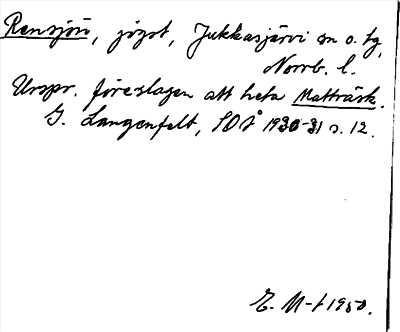 Rensjön, jvgst, Jukkasjärvi sn o. tg,
Norrb. l.
Urspr. föreslagen att heta Matträsk.
G. Langenfelt, SOÅ 1930-31 s. 12.
E. M-t 1950.